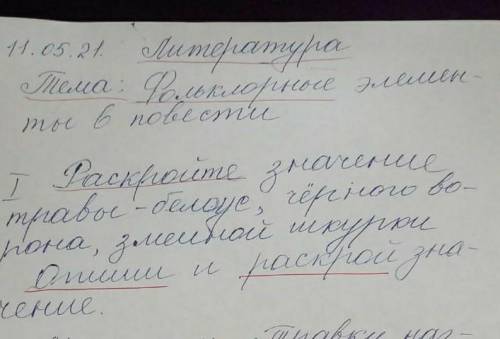 11.05.21. Литература
Тема: Фольклорные элемен-
ты в повести
I Раскройте значение
травы-белоус, чёрного во-
рона, змеиной шкурки
Опиши и раскрой зна-
чение.
травки наг-